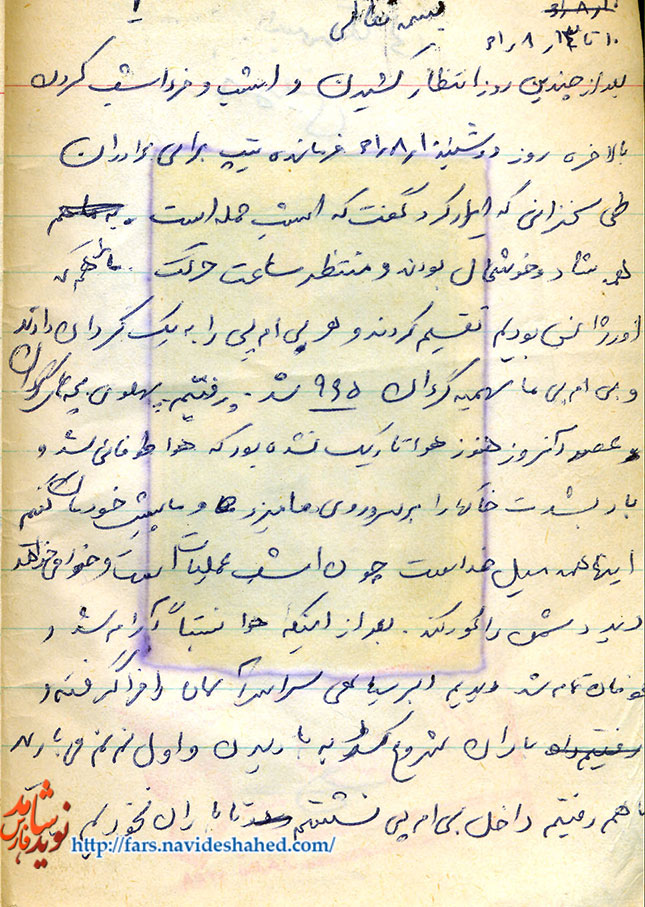 بسمه تعالی
۱۰ تا ۱۳/۸/۶۱
بعد از چندین روز انتظار کشیدن و امشب و فردا شب کردن
بالاخره روز دوشنبه ۱۰/۸/۶۱ فرمانده تیپ برای برادران
طی سخنرانی که ایراد کرد گفت که امشب حمله است.
همه شاد و خوشحال بودند و منتظر ساعت حرکت. ما هم که
اورژانس بودیم تقسیم کردند و هر پی ام پی را به یک گردان دادند
و پی ام پی ما سهمیه گردان ۹۶۵ شد. رفتیم پهلوی بچه های گردان
عصر آنروز هنوز هوا تاریک نشده بود که هوا طوفانی شد و
باد بشدت خاکها را بر سر و روی ما میزد و ما پیش خودمان گفتیم
اینها همه میل خداست چون امشب عملیات است و خدا می خواهد
دید دشمن را کور کند. بعد از اینکه هوا نسبتاً آرام شد و
طوفان تمام شد دیدیم ابر سیاهی سراسر آسمان را فرا گرفته و
باران شروع کرد به باریدن و اول نم نم می بارید
ما هم رفتیم داخل پی ام پی نشستیم تا باران نخوریم
نوید شاهد فارس
http://fars.navideshahed.com/